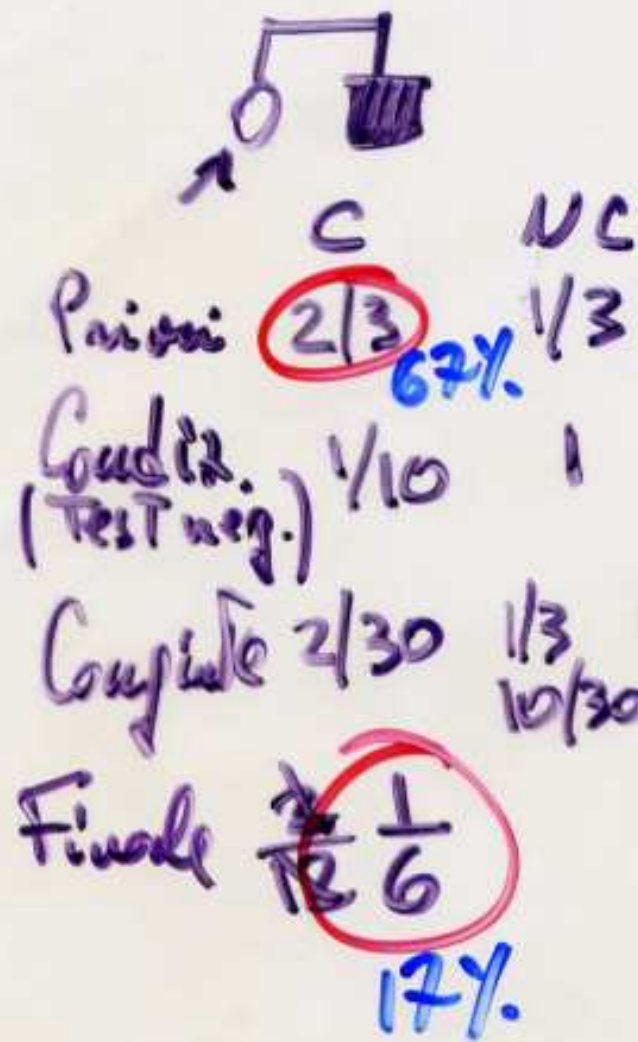 C NC
Priori 2/3 1/3
67%.
Condiz. 1/10 1
(Test neg.)
Congiunte 2/30 1/3
10/30
Finale 2/12 1/6
17%.